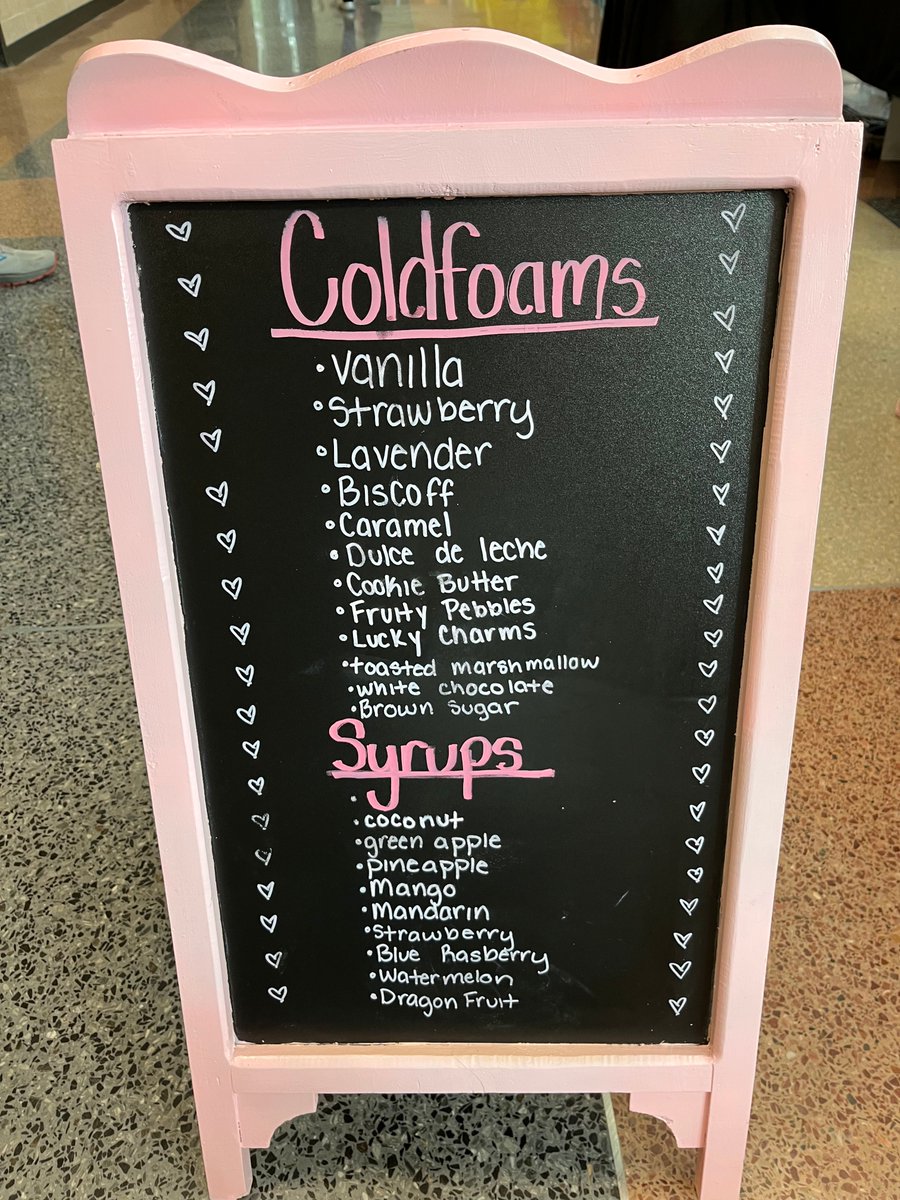 Coldfoams
•Vanilla
•Strawberry
•Lavender
•Biscoff
•Caramel
•Dulce de leche
•Cookie Butter
•Fruity Pebbles
•Lucky Charms
•toasted marshmallow
•white chocolate
•Brown sugar
Syrups
•
•coconut
•green apple
•pineapple
•Mango
•Mandarin
•Strawberry
•Blue Rasberry
•Watermelon
•Dragon Fruit